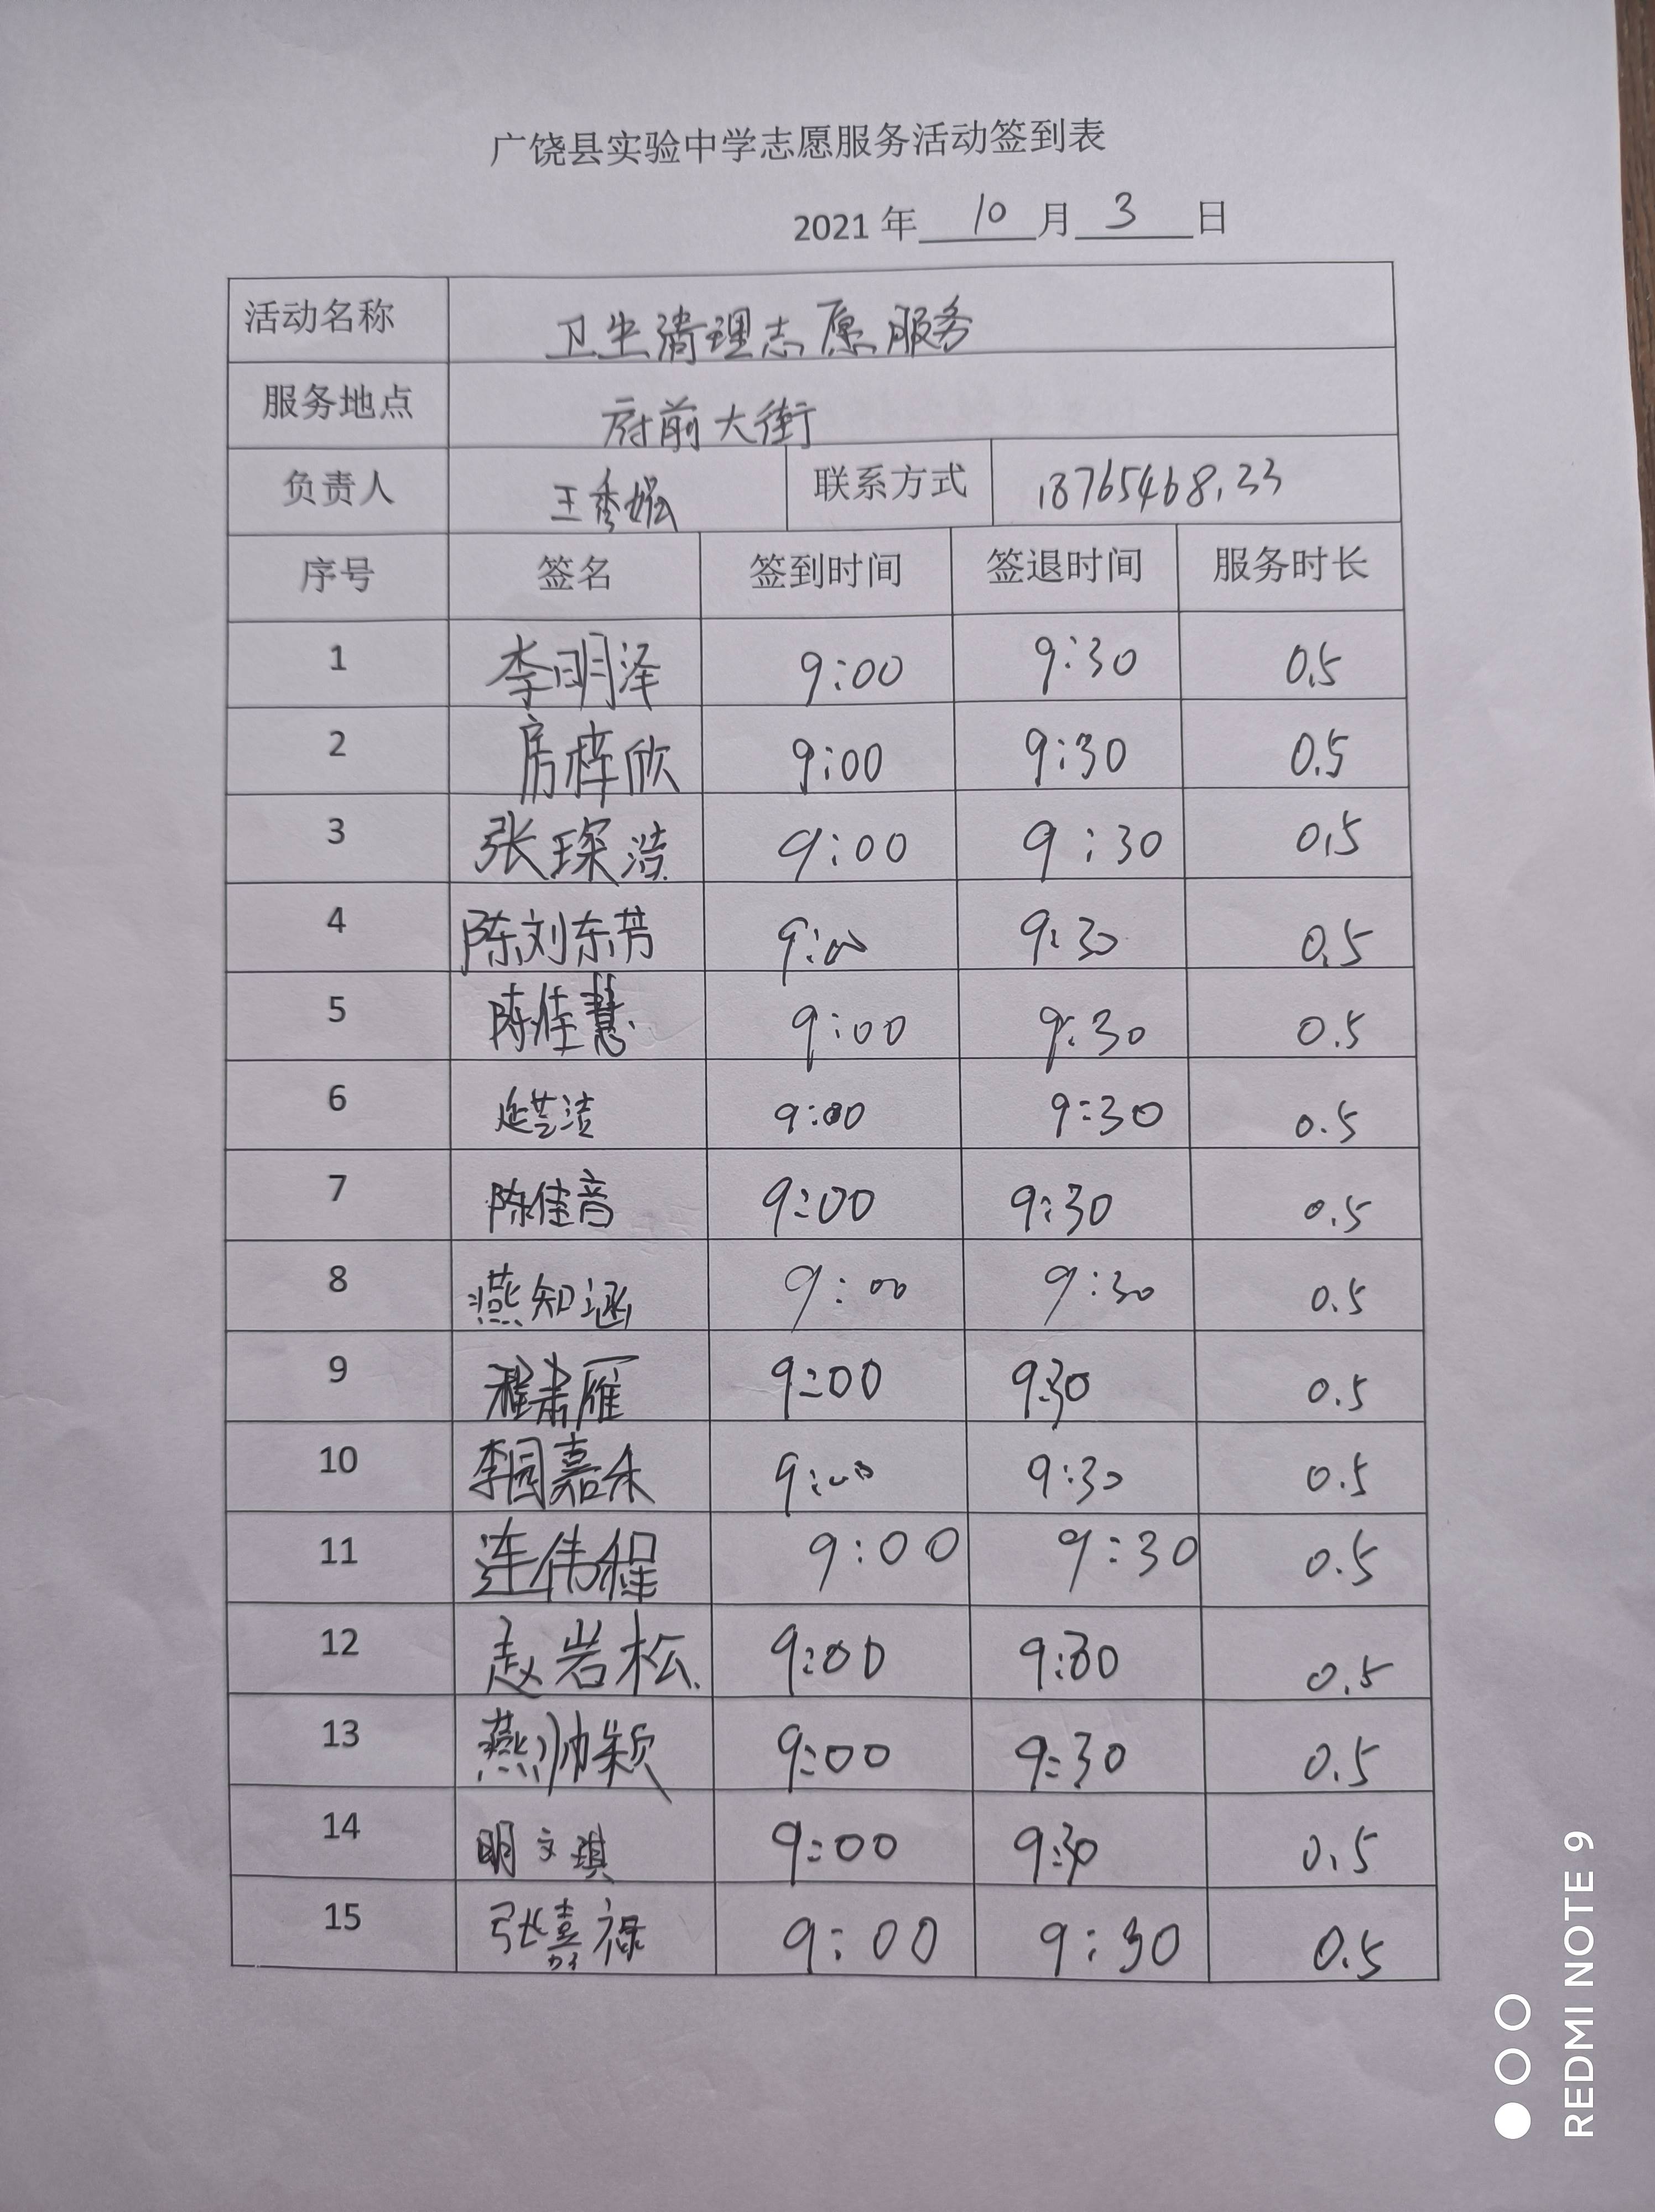 广饶县实验中学志愿服务活动签到表
2021 年 10 月 3 日
活动名称 卫生清理志愿服务
服务地点 府前大街
负责人 王秀 联系方式 18765468133
序号 签名 签到时间 签退时间 服务时长
1 李明泽 9:00 9:30 0.5
2 房梓欣 9:00 9:30 0.5
3 张琛浩 9:00 9:30 0.5
4 陈刘东芳 9:00 9:30 0.5
5 陈佳慧 9:00 9:30 0.5
6 延芸洁 9:00 9:30 0.5
7 陈佳音 9:00 9:30 0.5
8 燕知涵 9:00 9:30 0.5
9 程肃雁 9:00 9:30 0.5
10 李园嘉禾 9:00 9:30 0.5
11 连伟程 9:00 9:30 0.5
12 赵岩松 9:00 9:30 0.5
13 燕帅颖 9:00 9:30 0.5
14 明文琪 9:00 9:30 0.5
15 张嘉禄 9:00 9:30 0.5
REDMI NOTE 9